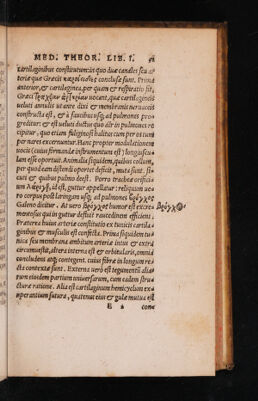 MED. THEOR. LIB. I.
cartilaginibus constitutum: in quo duæ canales seu ar
teriæ quæ Græcis conclusæ sunt. Prima
anterior, & cartilaginea, per quam & respiratio fit,
Græci vocant, quæ cartilagineis
veluti annulis ut ante dixi & membranis neruosis
constructa est, & à faucibus usq; ad pulmones pro
greditur: & est ueluti ductus quo aër in pulmones re
cipitur, quo etiam fuliginosi halitus cum per os tum
per nares excernuntur. Hanc propter modulationem
uocis (cuius firmandæ instrumentum est) longiuscu
lam esse oportuit. Animalia siquidem, quibus collum,
per quod eam distendi oportet deficit, muta sunt. Si
cuti & quibus pulmo deest. Porro tracheæ orificiu
m guttur appellatur: reliquum ue
ro corpus post laringem usq; ad pulmones βρόγχος
Galeno dicitur. At uero βρόγχος humor est excre
mentosus qui in guttur defluit raucedinem efficiens.
Præterea huius arteriæ constitutio ex tunicis cartila
ginibus & musculis est confecta. Prima siquidem tu
nica seu membrana ambitum arteriæ intus & extra
simul complectens, altera interna est & orbicularis, omnia
concludens atq; contegens. cuius fibræ in longum re
cte contextæ sunt. Externa uerò est tegumenti alia
rum eiusdem partium uniuersarum, cum eadem stru
cturæ ratione. Alia est cartilaginum hemicyclum ex
uperantium sutura, quatenus eius & gulæ mutuus est
E 2 cone
βρόγχος.